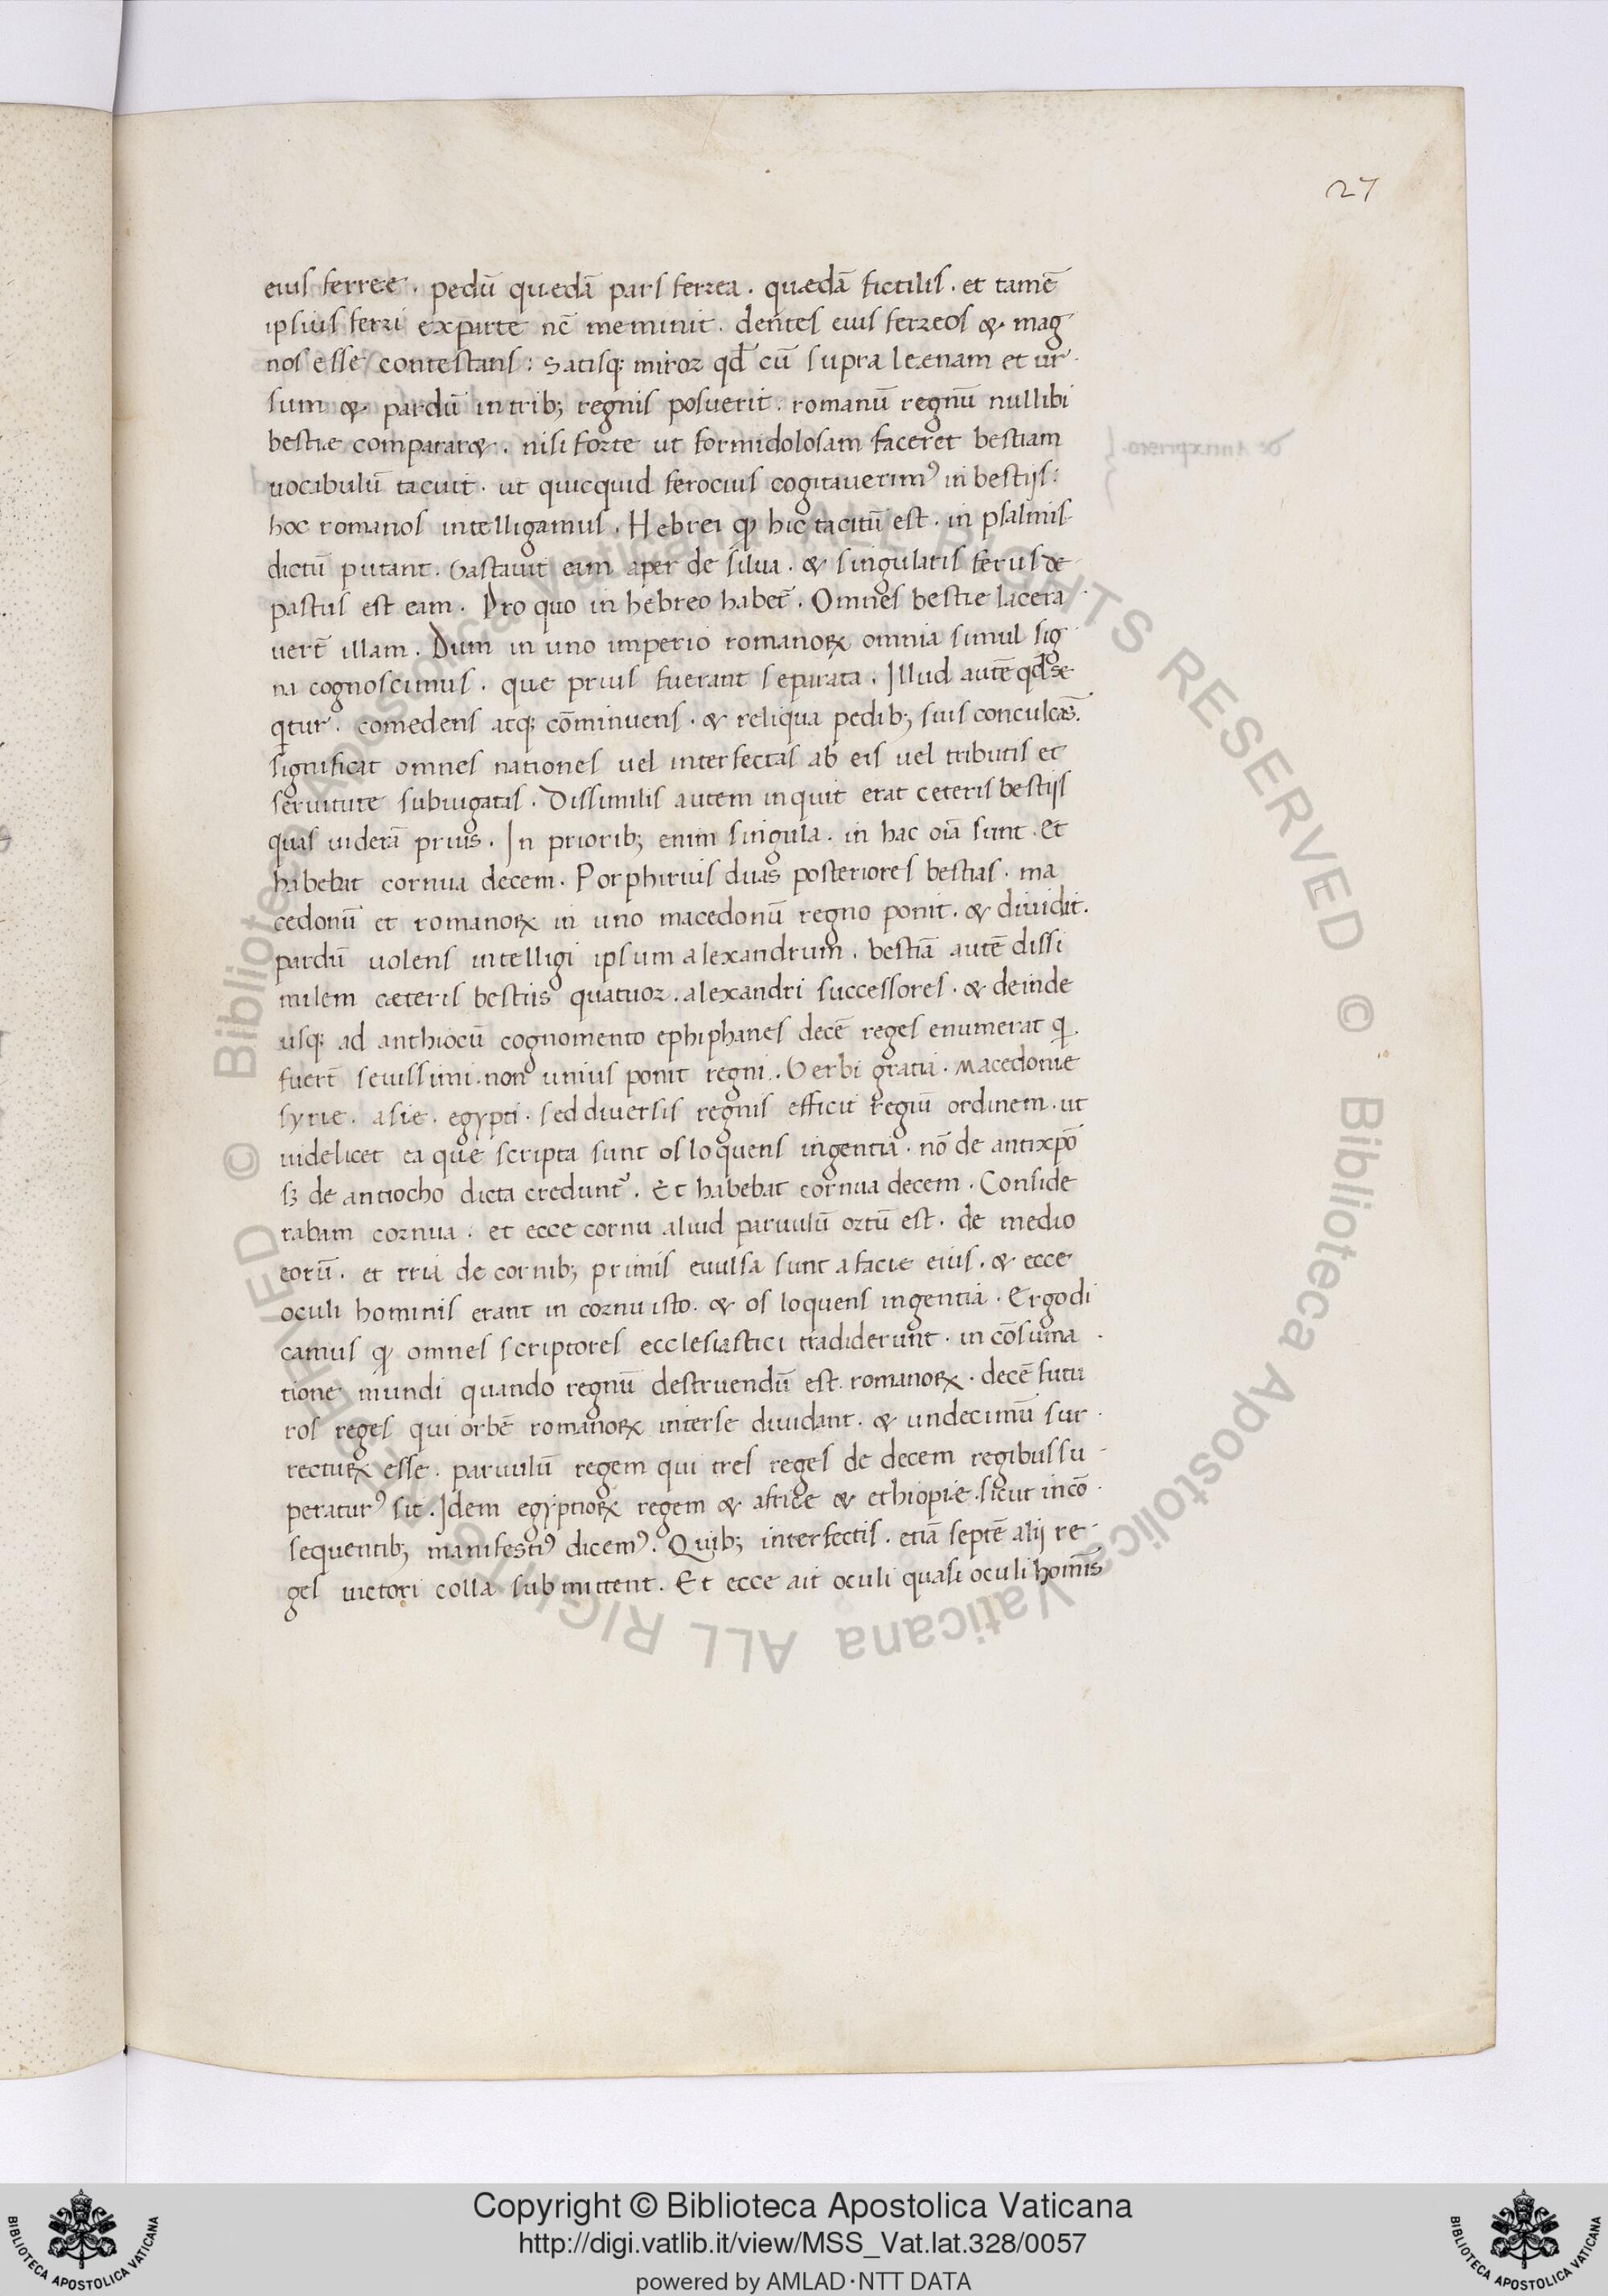 27
eius ferreę. pedū quædā pars ferrea. quædā fictilis. et tamē
ipsius ferri ex parte nc̄ meminit. dentes eius ferreos & mag
nos esse contestans: Satisq; miror qđ cū supra leænam et ur
sum & pardū in trib; regnis posuerit. romanū regnū nullibi
bestiæ comparar&. nisi forte ut formidolosam faceret bestiam
uocabulū tacuit. ut quicquid ferocius cogitauerimꝰ in bestijs:
hoc romanos intelligamus. Hebrei ꝙ hic tacitū est. in psalmis
dictū putant. Vastauit eam aper de silua. & singularis ferus de
pastus est eam. Pro quo in hebreo habet̄. Omnes bestię lacera
uert̄ illam. Dum in uno imperio romanoꝝ omnia simul sig
na cognoscimus. que prius fuerant separata. Illud autē qđ se
qtur. comedens atq; cōminuens. & reliqua pedib; suis conculcās.
significat omnes nationes uel interfectas ab eis uel tributis et
seruitute subiugatas. Dissimilis autem inquit erat ceteris bestijs
quas uiderā prius. In priorib; enim singula. in hac oīa sunt. et
habebat cornua decem. Porphirius duas posteriores bestias. ma
cedonū et romanoꝝ in uno macedonū regno ponit. & diuidit.
pardū uolens intelligi ipsum alexandrum. bestiā autē dissi
milem cæteris bestiis quatuor. alexandri successores. & deinde
usq; ad anthiocū cognomento ephiphanes decē reges enumerat q̄
fuert̄ seuissimi. non unius ponit regni. Verbi gratia. Macedonię
syrię. asię. egypti. sed diuersis regnis efficit regiū ordinem. ut
uidelicet ea que scripta sunt os loquens ingentia. nō de antixp̄o
sꝫ de antiocho dicta credunt᷑. Et habebat cornua decem. Conside
rabam cornua. et ecce cornu aliud paruulū ortū est. de medio
eorū. et tria de cornib; primis euulsa sunt a facie eius. & ecce
oculi hominis erant in cornu isto. & os loquens ingentia. Ergo di
camus ꝙ omnes scriptores ecclesiastici tradiderunt. in cōsuma
tione mundi quando regnū destruendū est romanoꝝ. decē futu
ros reges qui orbē romanoꝝ inter se diuidant. & undecimū sur
recturꝝ esse. paruulū regem qui tres reges de decem regibus su
peraturꝰ sit. Idem egyptioꝝ regem & africe & ethiopię. sicut in cō
sequentib; manifestiꝰ dicemꝰ. Quib; interfectis. etiā septē alij re
ges uictori colla submittent. Et ecce ait oculi quasi oculi hoīnīs
Copyright © Biblioteca Apostolica Vaticana
http://digi.vatlib.it/view/MSS_Vat.lat.328/0057
powered by AMLAD·NTT DATA
BIBLIOTECA APOSTOLICA VATICANA
BIBLIOTECA APOSTOLICA VATICANA
© Biblioteca Apostolica Vaticana ALL RIGHTS RESERVED
© Biblioteca Apostolica Vaticana ALL RIGHTS RESERVED